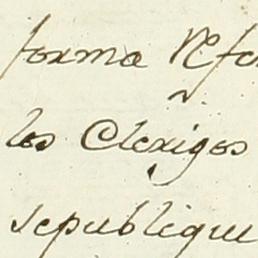 forma
los Clerigos
republique